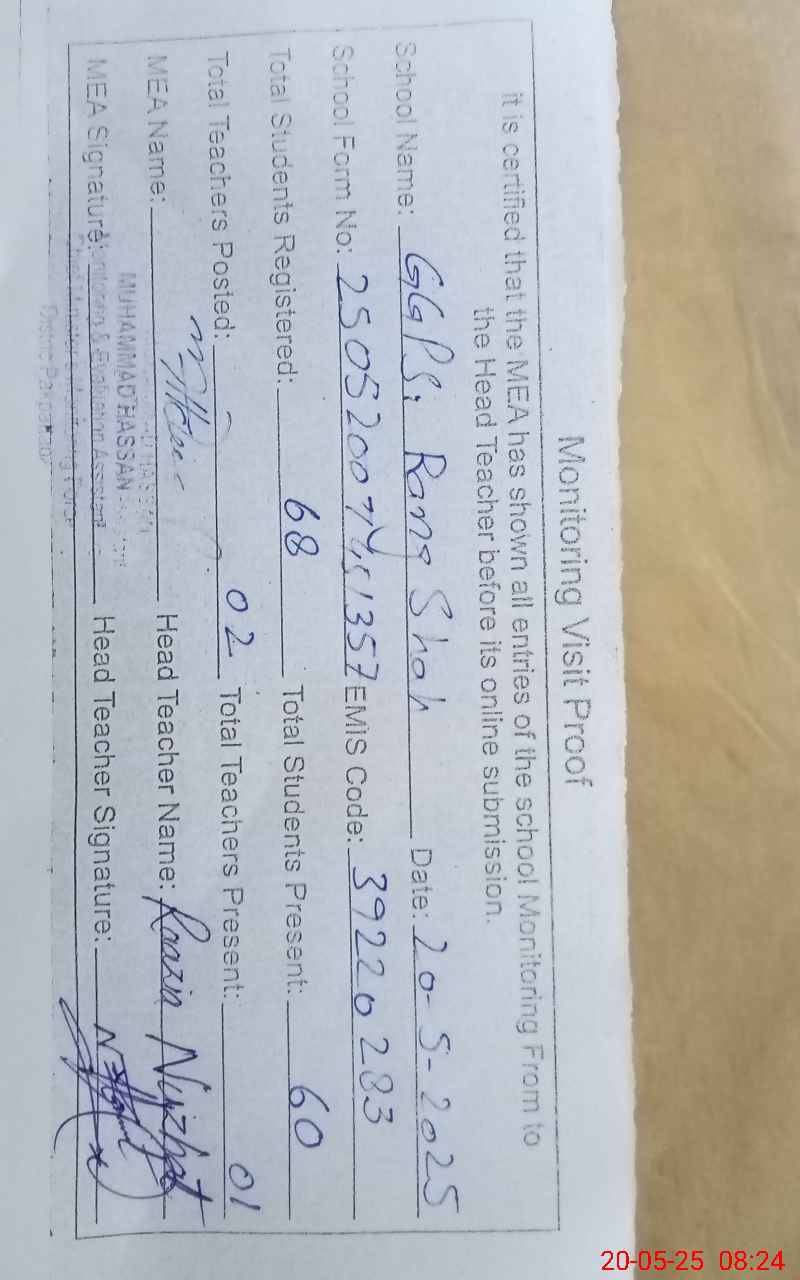 Monitoring Visit Proof
it is certified that the MEA has shown all entries of the school Monitoring From to
the Head Teacher before its online submission.
School Name: GGPS, Rang Shah Date: 20-5-2025
School Form No: EMIS Code: 39220283
Total Students Registered: 68 Total Students Present: 60
Total Teachers Posted: 02 Total Teachers Present: 01
MEA Name: Head Teacher Name: Raazia Nuzhat
MUHAMMAD HASSAN
MEA Signature: Head Teacher Signature:
Monitoring & Evaluation Assistant
Chief Minister's Monitoring Force
District Pakpattan
20-05-25 08:24